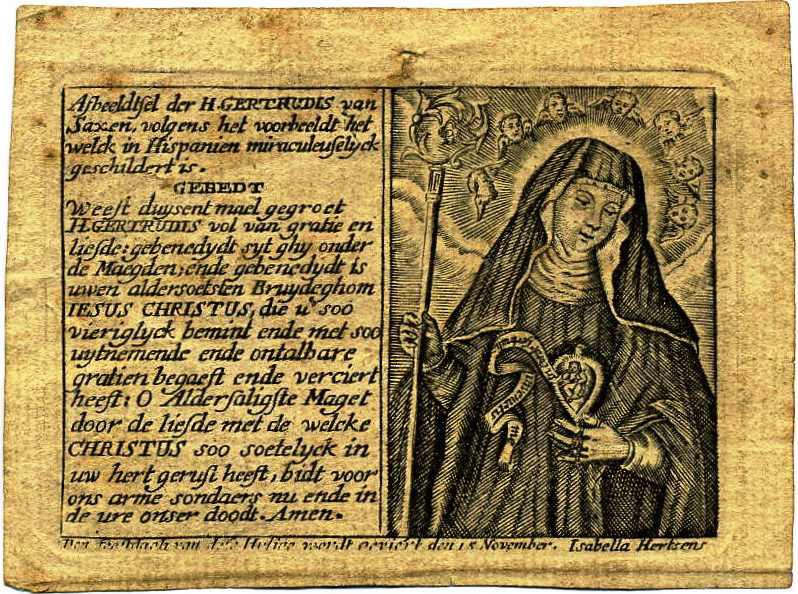 Afbeeldtsel der H.GERTRUDIS van
Saxen, volgens het voorbeeldt het
welck in Hispanien miraculeuselyck
geschildert is.
GEBEDT
Weest duysent mael gegroet
H.GERTRUDIS vol van gratie en
liefde: gebenedydt syt ghy onder
de Maegden, ende gebenedydt is
uwen aldersoetsten Bruydeghom
IESUS CHRISTUS, die u soo
vieriglyck bemint ende met soo
uytnemende ende ontalbare
gratien begaeft ende verciert
heeft: O Aldersaligste Maget
door de liefde met de welcke
CHRISTUS soo soetelyck in
uw hert gerust heeft, bidt voor
ons arme sondaers nu ende in
de ure onser doodt. Amen.
Den feestdach van dese Heilige wordt geviert den 15 November. Isabella Hertsens